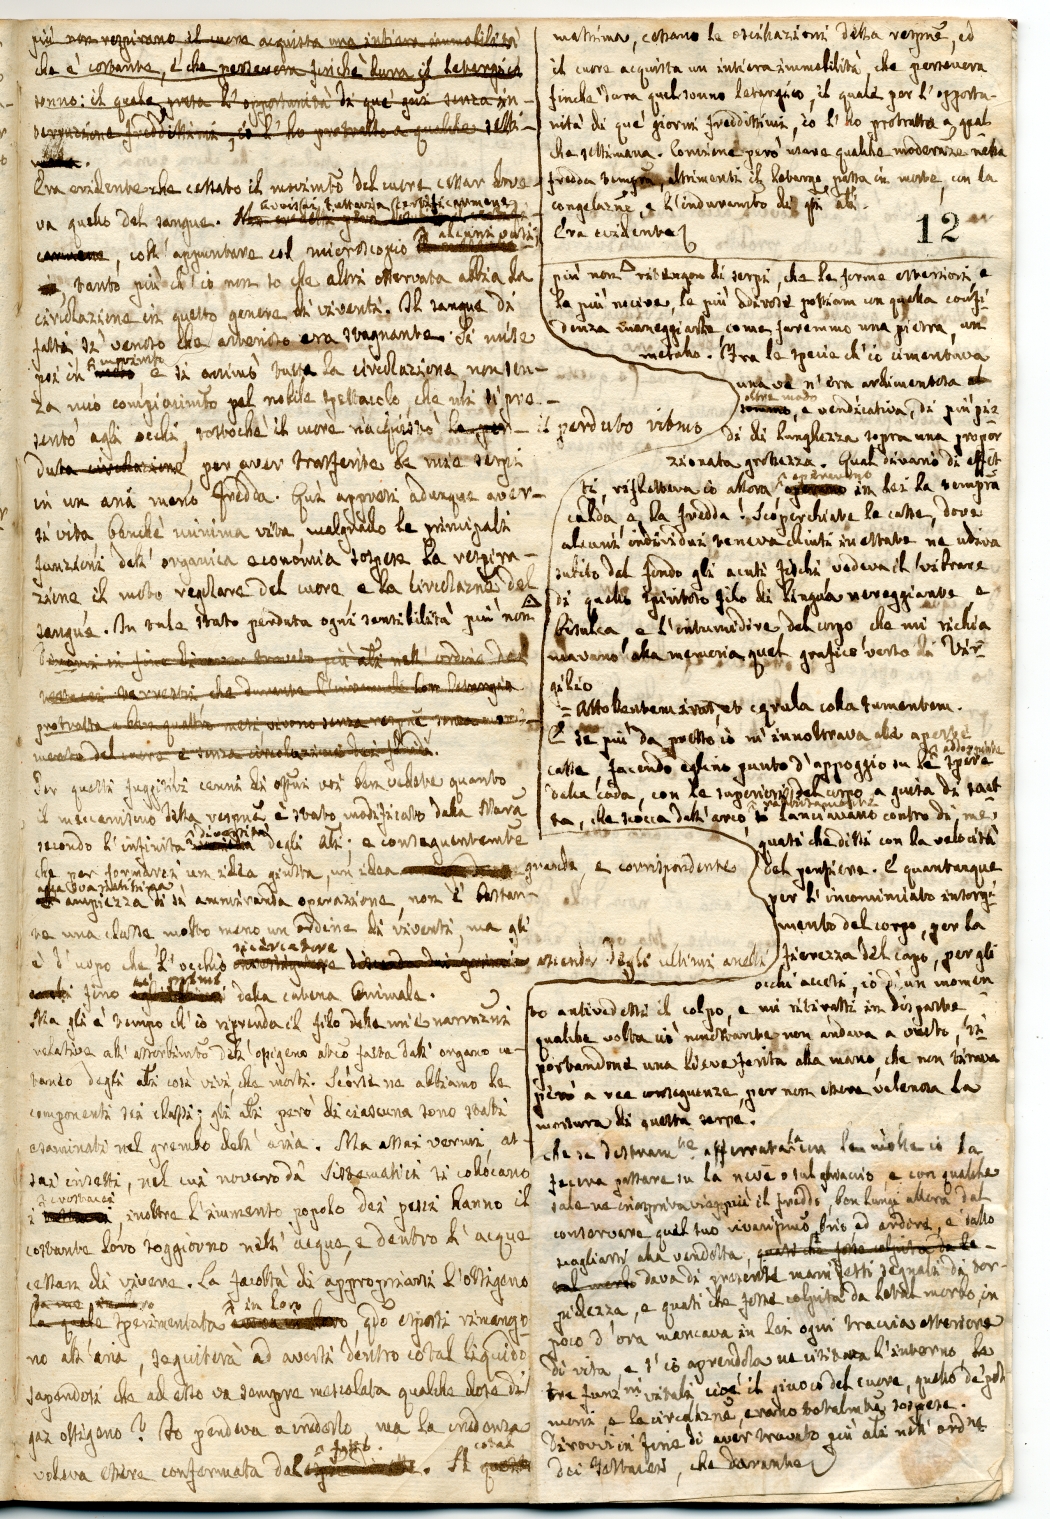 più non respirano il cuore acquista una intiera immobilità
che è costante, e che persevera finchè dura il letargico
sonno: il quale, vista l'opportunità di que' giorni senza in-
terruzione freddissimi, io l'ho protratto a qualche setti-
mana.
Era evidente che cessato il movimto del cuore cessar dove
va quello del sangue.
avvisai tuttavia certificarmene
alcuni vasi
, coll'appuntare col microscopio
tanto più ch'io non so che altri osservata abbia la
circolazione in questo genere di viventi. Il sangue di
fatti sì venoso che arterioso era stagnante. Si mise
poi in movimto e si animò tutta la circolazione non sen-
za mio compiacimto pel nobile spettacolo che mi si pre-
sentò agli occhi, tostochè il cuore riacquistò la per- il perduto ritmo
duta circolazione per aver trasferite le mie serpi
in un aria meno fredda. Qui apparvi adunque aver-
si vita benchè minima vita, malgrado le principali
funzioni dell'organica economia sospese la respira-
zione il moto regolare del cuore e la circolazne del
sangue. In tale stato perduta ogni sensibilità più non
Dirovvi in fine di aver trovato più altri nell'ordine dei
testacei terrestri che durante l'invernale lor letargia
protratta a ben quattro mesi vivono senza respne senza movi-
mento del cuore e senza circolazione dei fluidi.
Per questi fuggitivi cenni di esseri voi ben vedete quanto
il meccanismo della respne è stato modificato dalla Natura
secondo l'infinita diversità degli esseri; e conseguentemte
che per formarci un'idea giusta, un'idea grande e corrispondente
alla vastissima
ampiezza di sì ammiranda operazione, non è bastan-
te una classe molto meno un ordine di viventi, ma gli
è d'uopo che l'occhio ricercatore discenda dai primi ascenda dagli ultimi anelli
fino ai primi della catena animale.
Ma gli è tempo ch'io riprenda il filo delle mie narrazioni
relative all'assorbimto dell'ossigeno atmco fatta dall'organo cu-
taneo degli altri così vivi che morti. Scorse ne abbiamo le
componenti sei classi; gli altri però di ciascuna sono stati
esaminati nel grembo dell'aria. Ma assai vermi, as-
sai insetti, nel cui novero dai Sistematici si collocano
i crostacei, inoltre l'immenso popolo dei pesci hanno il
costante loro soggiorno nell'acque, e dentro l'acque
cessan di vivere. La facoltà di appropriarsi l'ossigeno
da me
la quale sperimentata in loro qdo esposti rimango-
no all'aria, seguiterà ad aversi dentro cotal liquido
sapendosi che ad esso va sempre mescolata qualche dose di
gaz ossigeno? Io pendeva a crederlo, ma la credenza
voleva essere confermata dal fatto. A cotal
massima, cessano le oscillazioni della respne, ed
il cuore acquista un intiera immobilità, che persevera
finchè dura quel sonno letargico, il quale per l'opportu-
nità di que' giorni freddissimi, io l'ho protratto a qual
che settimana. Conviene però usare qualche moderaze nella
fredda tempra, altrimenti il letargo passa in morte, con la
congelazne, e l'induramento degli altri.
Era evidente
12
più non risorgon di serpi, che le forme esteriori, e
le più nocive, le più adirose possiam con quella confi-
denza maneggiarle come faremmo una pietra, un
metallo. Fra le specie ch'io cimentava
una ve n'era ardimentosa
oltre modo, e vendicativa, di più pie
di di lunghezza sopra una propor
zionata grossezza. Qual divario di effet
ti, rifletteva io allora, operavano in lei la tempra
calda, e la fredda! Scoperchiate le casse, dove
alcuni individui teneva chiusi in estate ne udiva
subito dal fondo gli acuti fischi vedeva il vibrare
di quello spiritoso filo di lingua nereggiante e
bisulca, e l'intumidire del corpo che mi richia
mavano alla memoria quel grafico verso di Vir-
gilio
= Attollentem iras, et cærula colla tumentem.
E se più da presso io m'innoltrava alle aperte
casse, facendo eglino punto d'appoggio su le spire
della coda, con le superiori del corpo a guisa di saet
ta, che scocca dall'arco, si lanciavano contro di me,
quasi che dissi con la velocità
del pensiere. E quantunque
per l'incominciato intorgi-
mento del corpo, per la
fierezza del capo, per gli
occhi accesi, io d'un momen
to antivedessi il colpo, e mi ritirassi in disparte
qualche volta ciò nonostante non andava a vuoto, ri
portandone una lieve ferita alla mano che non tirava
però a ree conseguenze, per non essere velenosa la
morsura di questa serpe.
che se destramte afferratala con le molle io la
faceva passare su la neve o sul ghiaccio e con qualche
sale ne inaspriva viappiù il freddo, ben lungi allora dal
conservare quel suo vivacissimo brio ed ardore, e dallo
scagliarsi alla vendetta, quasi che fosse colpita da le-
tal morbo dava di presente manifesti segnali di tor-
pidezza, e quasi che fosse colpita da letal morbo, in
poco d'ora mancava in lei ogni traccia esteriore
di vita, e s'io aprendola ne visitava l'interno le
tre funzni vitali cioè il giuoco del cuore, quello de' pol-
moni e la circolazne, erano totalmte sospese.
Dirovvi in fine di aver trovato più altri nell'ordne
dei testacei, che durante